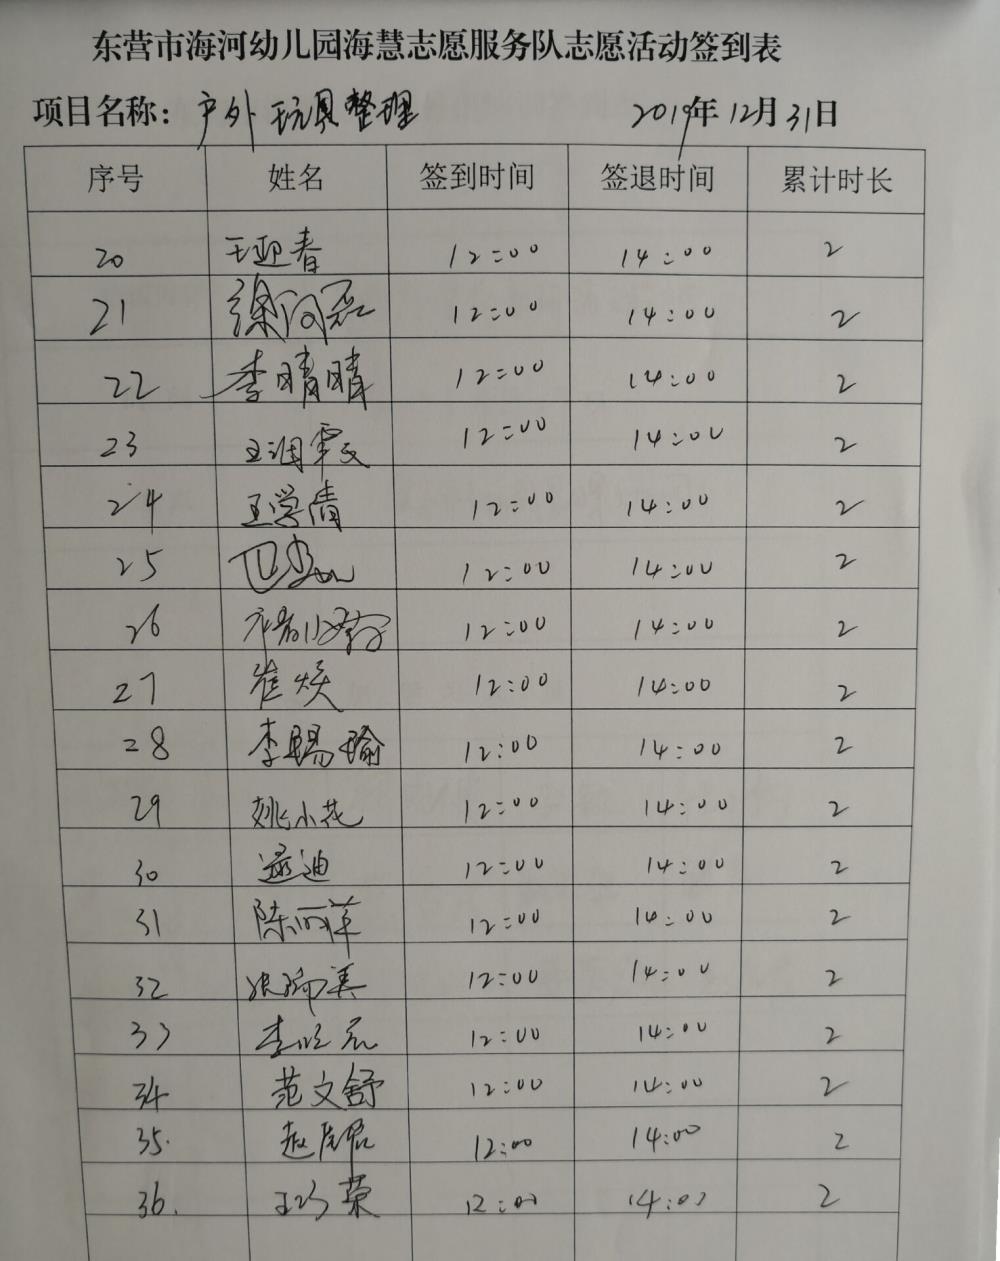 东营市海河幼儿园海慧志愿服务队志愿活动签到表
项目名称：户外玩具整理 2019年12月31日
序号 姓名 签到时间 签退时间 累计时长
20 王迎春 12:00 14:00 2
21 徐向磊 12:00 14:00 2
22 李晴晴 12:00 14:00 2
23 王润霞 12:00 14:00 2
24 王学清 12:00 14:00 2
25 12:00 14:00 2
26 12:00 14:00 2
27 崔焕 12:00 14:00 2
28 李赐瑜 12:00 14:00 2
29 姚小花 12:00 14:00 2
30 逯迪 12:00 14:00 2
31 陈丽萍 12:00 14:00 2
32 12:00 14:00 2
33 12:00 14:00 2
34 范文舒 12:00 14:00 2
35. 12:00 14:00 2
36. 王巧荣 12:00 14:00 2